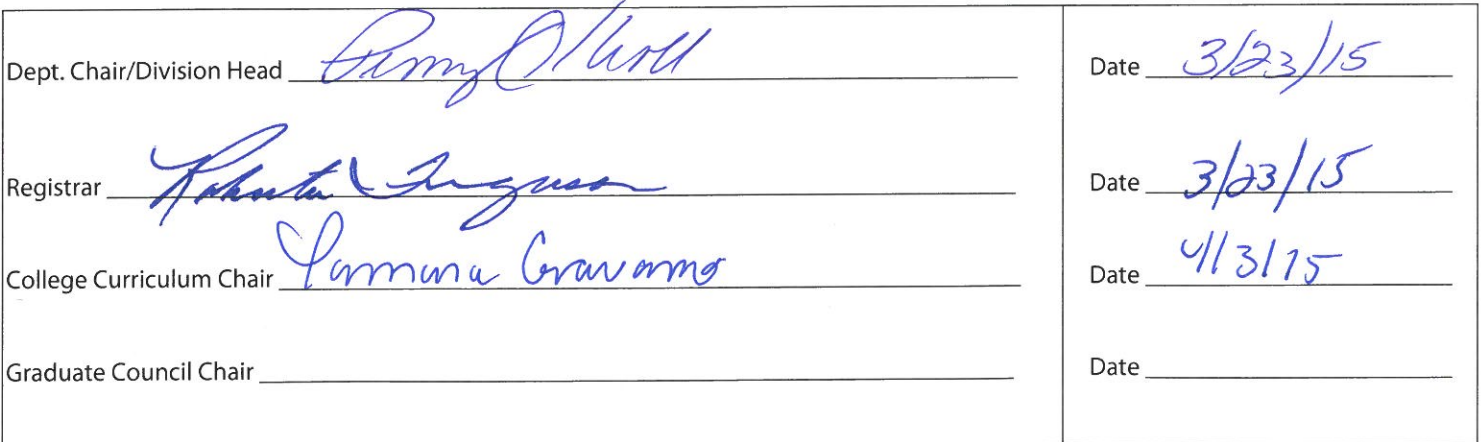 Dept. Chair/Division Head Date 3/23/15
Registrar Ferguson Date 3/23/15
College Curriculum Chair Date 4/3/15
Graduate Council Chair Date